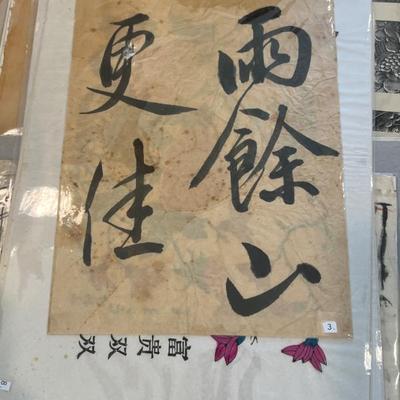 雨餘山
更佳
3.
富贵双双